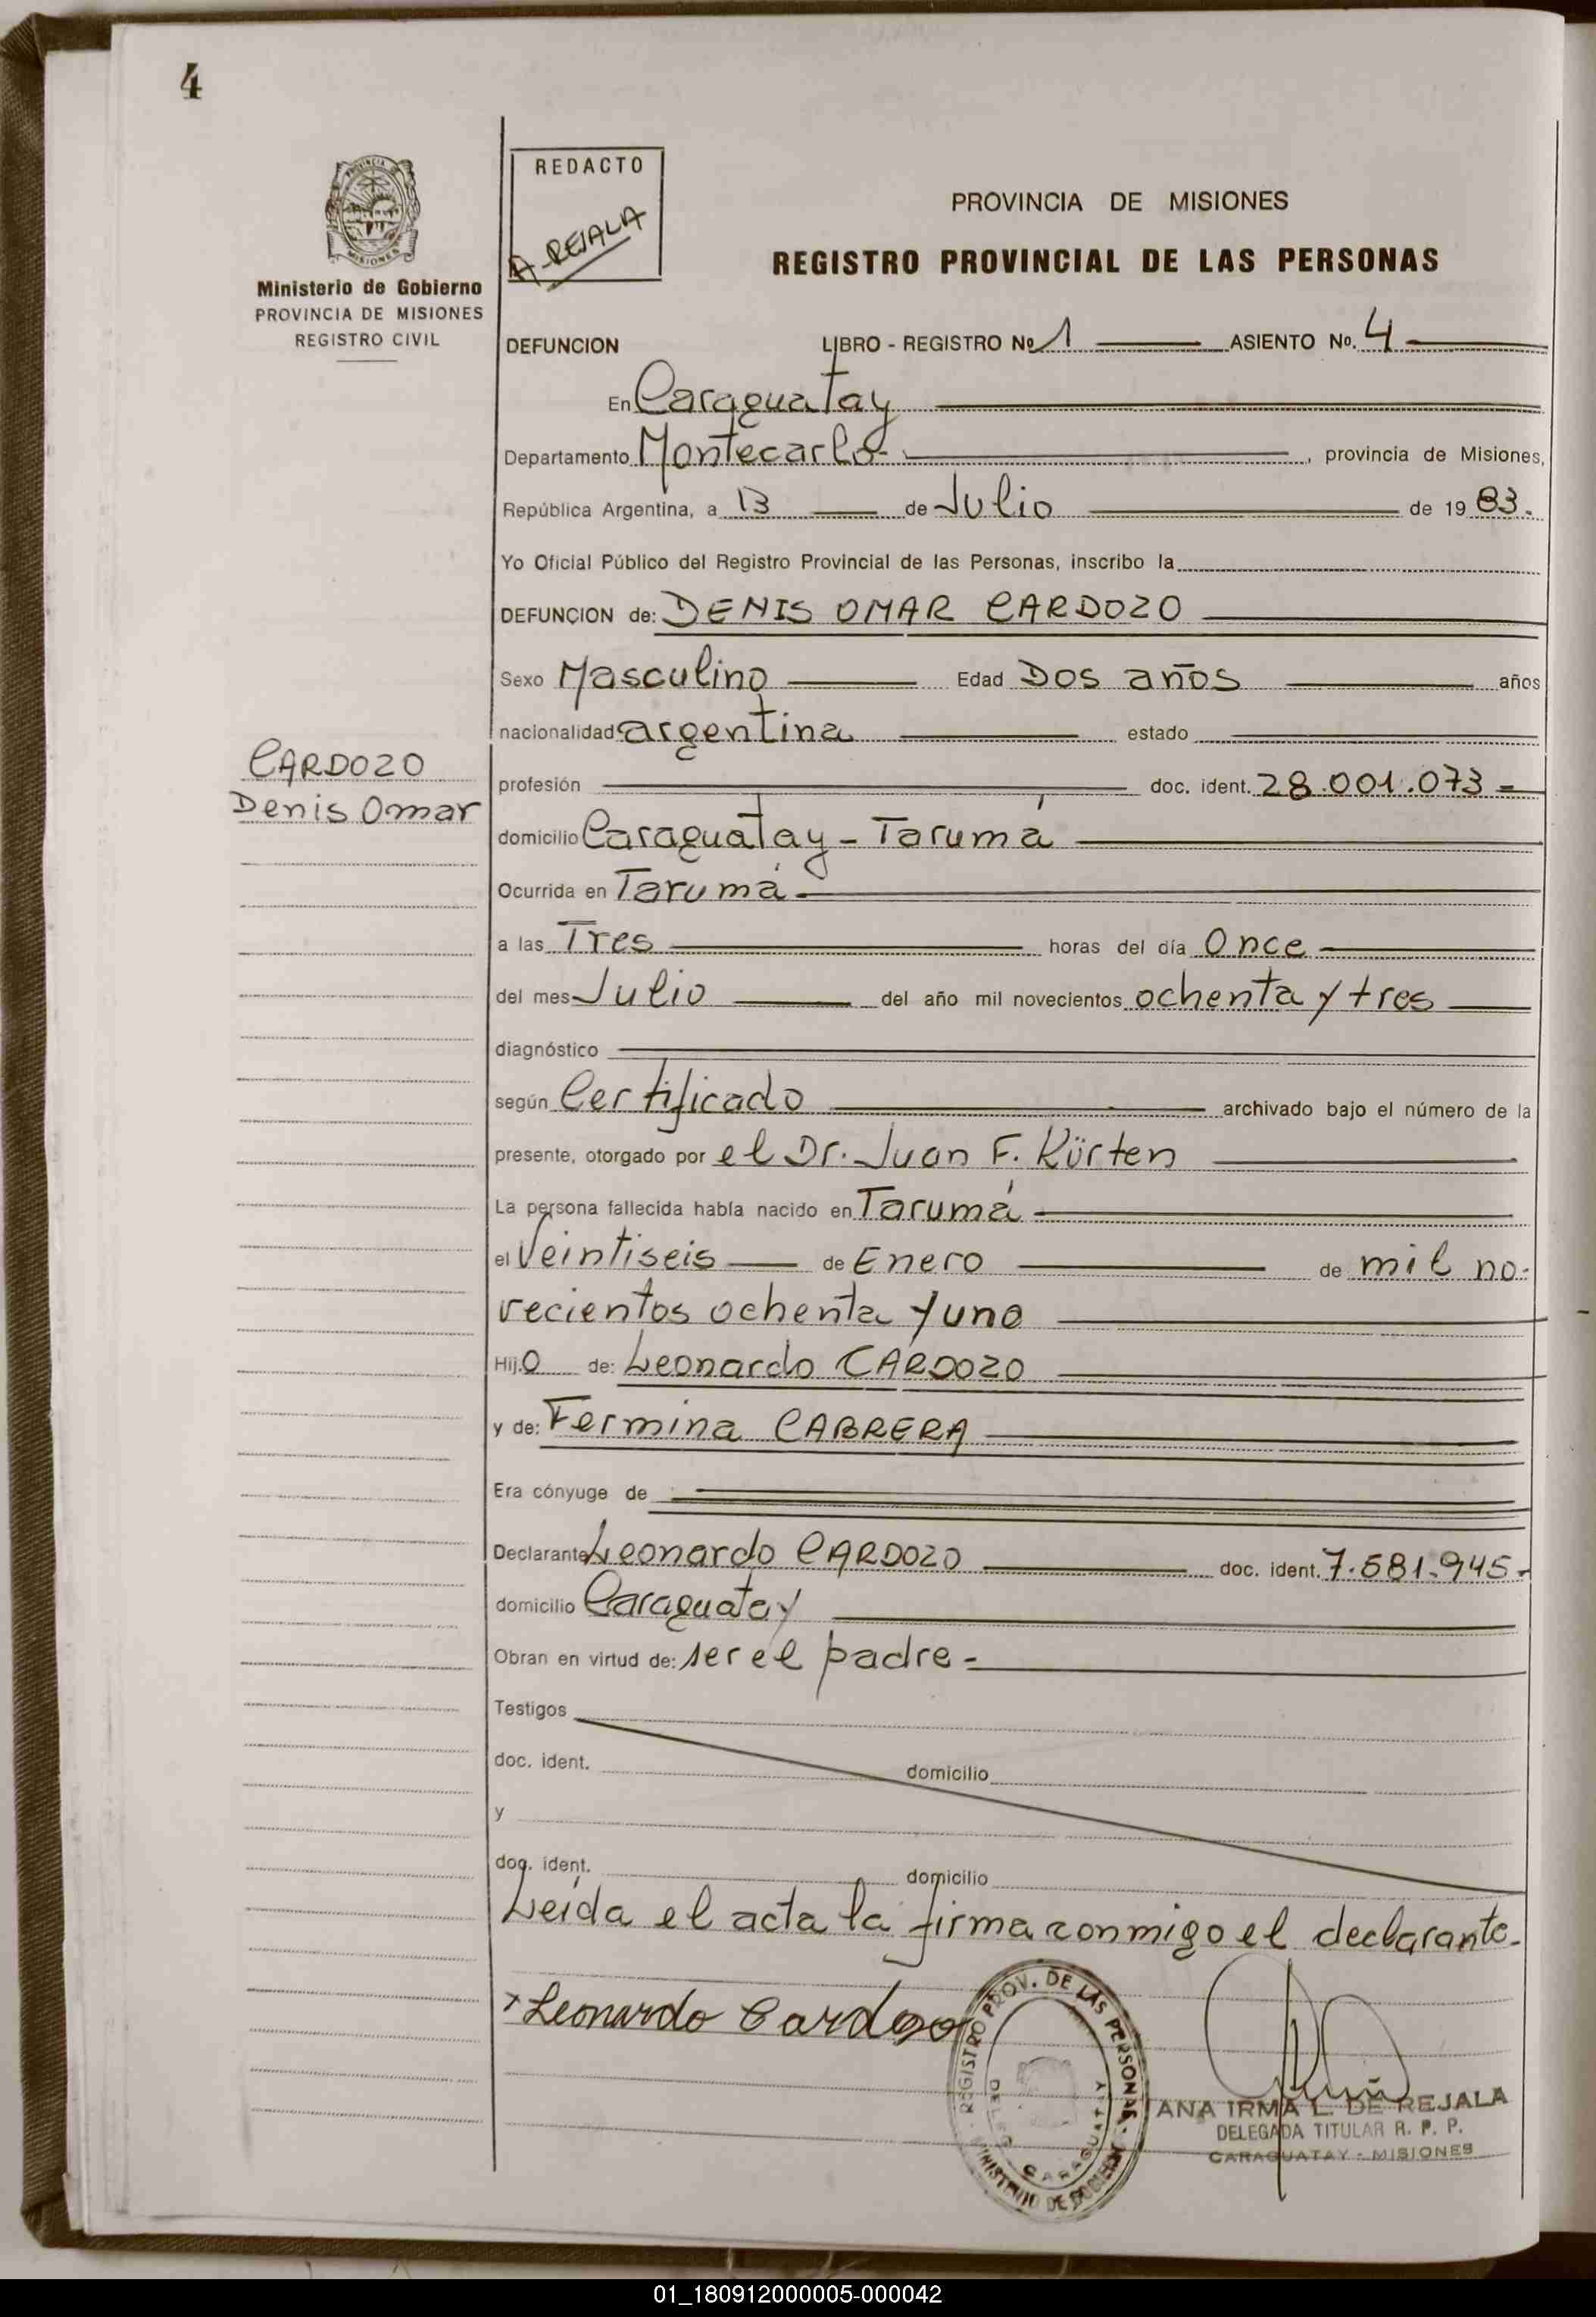 4
REDACTO
A-REJALA
PROVINCIA DE MISIONES
REGISTRO PROVINCIAL DE LAS PERSONAS
MISIONES
Ministerio de Gobierno
PROVINCIA DE MISIONES
REGISTRO CIVIL
DEFUNCION LIBRO - REGISTRO Nº 1 ASIENTO Nº. 4
En Caraguatay
Departamento Montecarlo-, provincia de Misiones,
República Argentina, a 13 de Julio de 1983.
Yo Oficial Público del Registro Provincial de las Personas, inscribo la
DEFUNCION de: DENIS OMAR CARDOZO
Sexo Masculino Edad Dos años años
nacionalidad argentina estado
CARDOZO
Denis Omar
profesión doc. ident. 28.001.073-
domicilio Caraguatay - Tarumá
Ocurrida en Tarumá
a las Tres horas del día Once
del mes Julio del año mil novecientos ochenta y tres
diagnóstico
según Certificado archivado bajo el número de la
presente, otorgado por el Dr. Juan F. Kürten
La persona fallecida había nacido en Tarumá
el Veintiseis de Enero de mil no-
vecientos ochenta y uno
Hijo de: Leonardo CARDOZO
y de: Fermina CABRERA
Era cónyuge de
Declarante Leonardo CARDOZO doc. ident. 7.581.945-
domicilio Caraguatay
Obran en virtud de: ser el padre-
Testigos
doc. ident. domicilio
y
doc. ident. domicilio
Leída el acta la firma conmigo el declarante-
x Leonardo Cardozo
REGISTRO PROV. DE LAS PERSONAS - MINISTERIO DE GOBIERNO
CARAGUATAY
ANA IRMA L. DE REJALA
DELEGADA TITULAR R. P. P.
CARAGUATAY - MISIONES
01_180912000005-000042